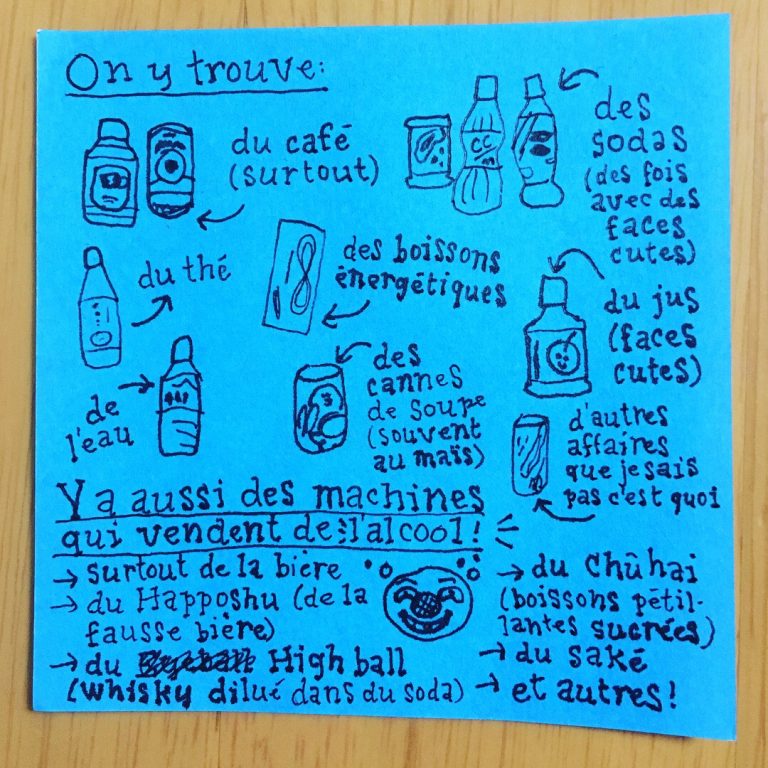 On y trouve:
du café
(surtout)
des
sodas
(des fois
avec des
faces
cutes)
CC
du thé
des boissons
énergétiques
du jus
(faces
cutes)
de
l'eau
des
cannes
de soupe
(souvent
au maïs)
d'autres
affaires
que je sais
pas c'est quoi
Y a aussi des machines
qui vendent de l'alcool!
→ surtout de la bière
→ du Happoshu (de la
fausse bière)
→ du High ball
(whisky dilué dans du soda)
→ du Chûhai
(boissons pétil-
lantes sucrées)
→ du saké
→ et autres!